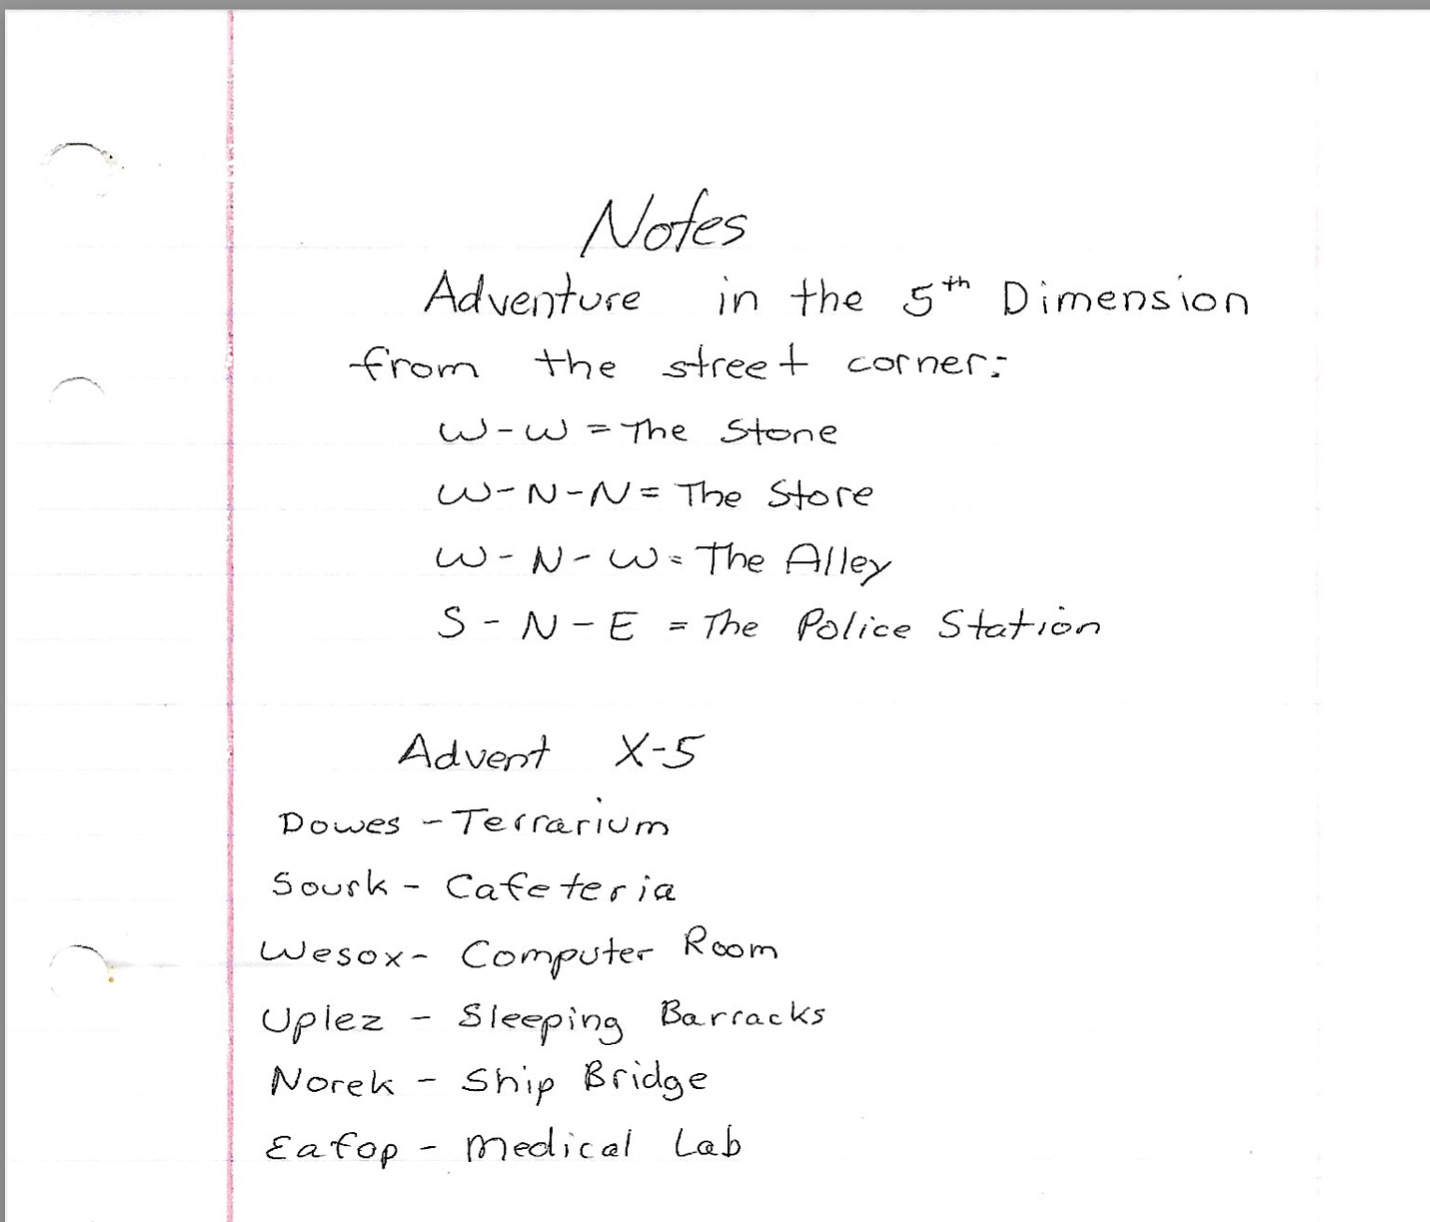 Notes
Adventure in the 5th Dimension
from the street corner:
W-W = The Stone
W-N-N = The Store
W-N-W = The Alley
S-N-E = The Police Station
Advent X-5
Dowes - Terrarium
Sourk - Cafeteria
Wesox - Computer Room
Uplez - Sleeping Barracks
Norek - Ship Bridge
Eafop - Medical Lab